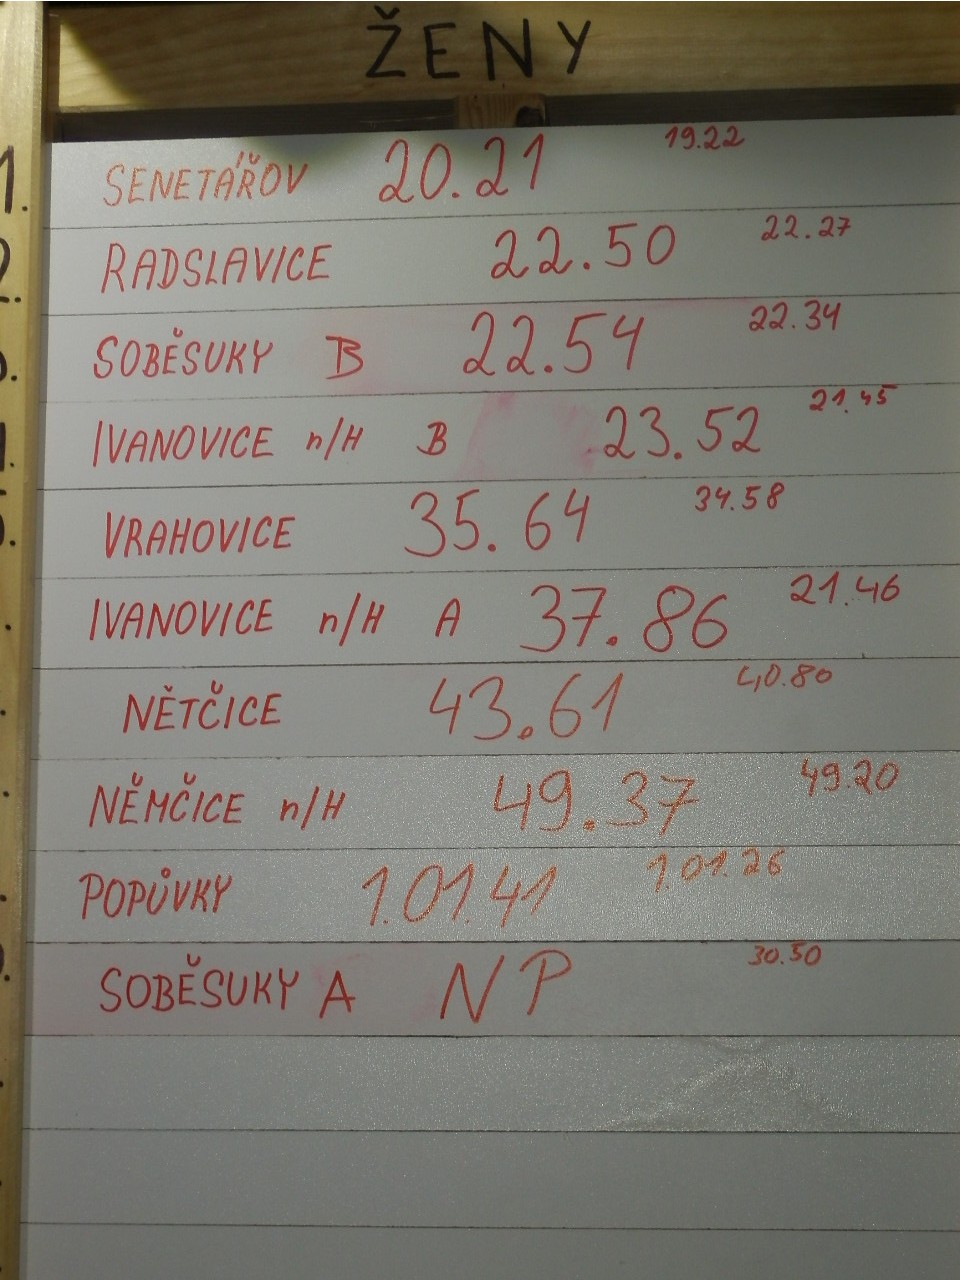 ŽENY
1. SENETÁŘOV 20.21 19.22
2. RADSLAVICE 22.50 22.27
SOBĚSUKY B 22.54 22.34
IVANOVICE n/H B 23.52 21.45
VRAHOVICE 35.64 34.58
IVANOVICE n/H A 37.86 21.46
NĚTČICE 43.61 40.80
NĚMČICE n/H 49.37 49.20
POPŮVKY 1.01.41 1.01.26
SOBĚSUKY A NP 30.50